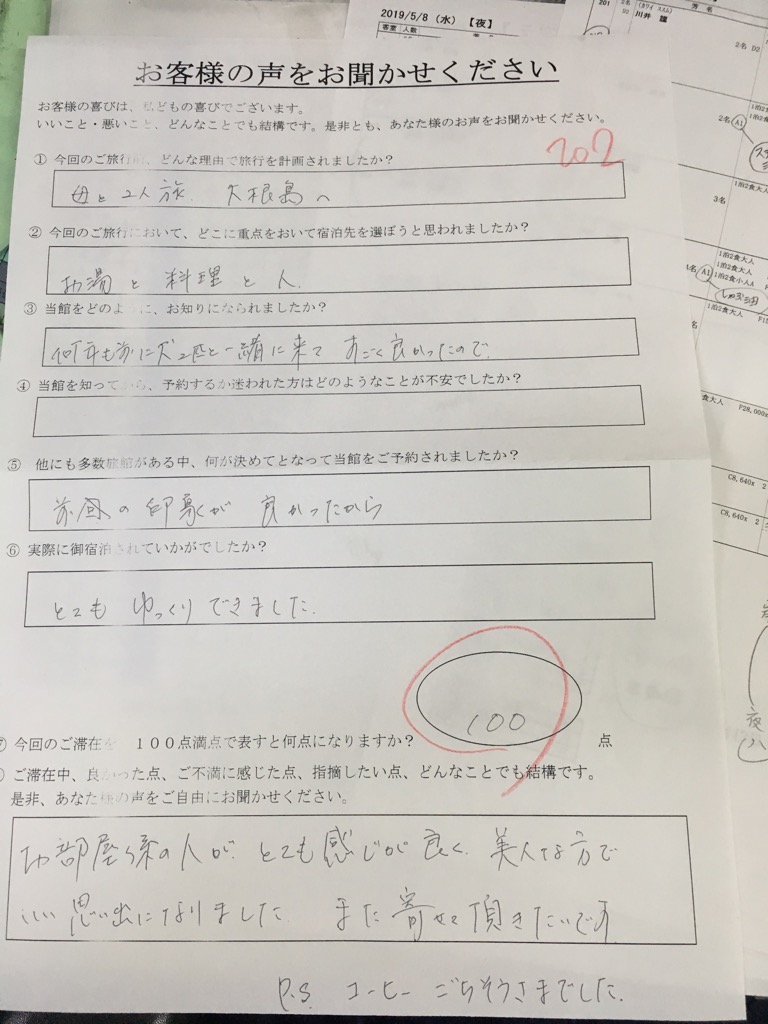 2019/5/8（水）【夜】
客室 人数
201 2名 D2
芳 名
(カワイ ススム)
川井 護
2名 D2
お客様の声をお聞かせください
お客様の喜びは、私どもの喜びでございます。
いいこと・悪いこと、どんなことでも結構です。是非とも、あなた様のお声をお聞かせください。
202
① 今回のご旅行前、どんな理由で旅行を計画されましたか？
母と2人旅. 大根島へ
② 今回のご旅行において、どこに重点をおいて宿泊先を選ぼうと思われましたか？
お湯と料理と人.
③ 当館をどのように、お知りになられましたか？
何年も前に犬2匹と一緒に来て すごく良かったので.
④ 当館を知ってから、予約するか迷われた方はどのようなことが不安でしたか？
⑤ 他にも多数旅館がある中、何が決めてとなって当館をご予約されましたか？
前回の印象が良かったから
⑥ 実際に御宿泊されていかがでしたか？
とてもゆっくりできました.
100
⑦ 今回のご滞在を １００点満点で表すと何点になりますか？ 点
ご滞在中、良かった点、ご不満に感じた点、指摘したい点、どんなことでも結構です。
是非、あなた様の声をご自由にお聞かせください。
お部屋係の人が. とても感じが良く. 美人な方で
いい思い出になりました. また寄せて頂きたいです
P.S. コーヒー ごちそうさまでした.
1泊2食大人
2名 A1
3名
1泊2食大人
1泊2食大人
1泊2食小人A
A1
1泊2食大人
食大人 F28,000x
C8,640x 2
C8,640x 2
夜